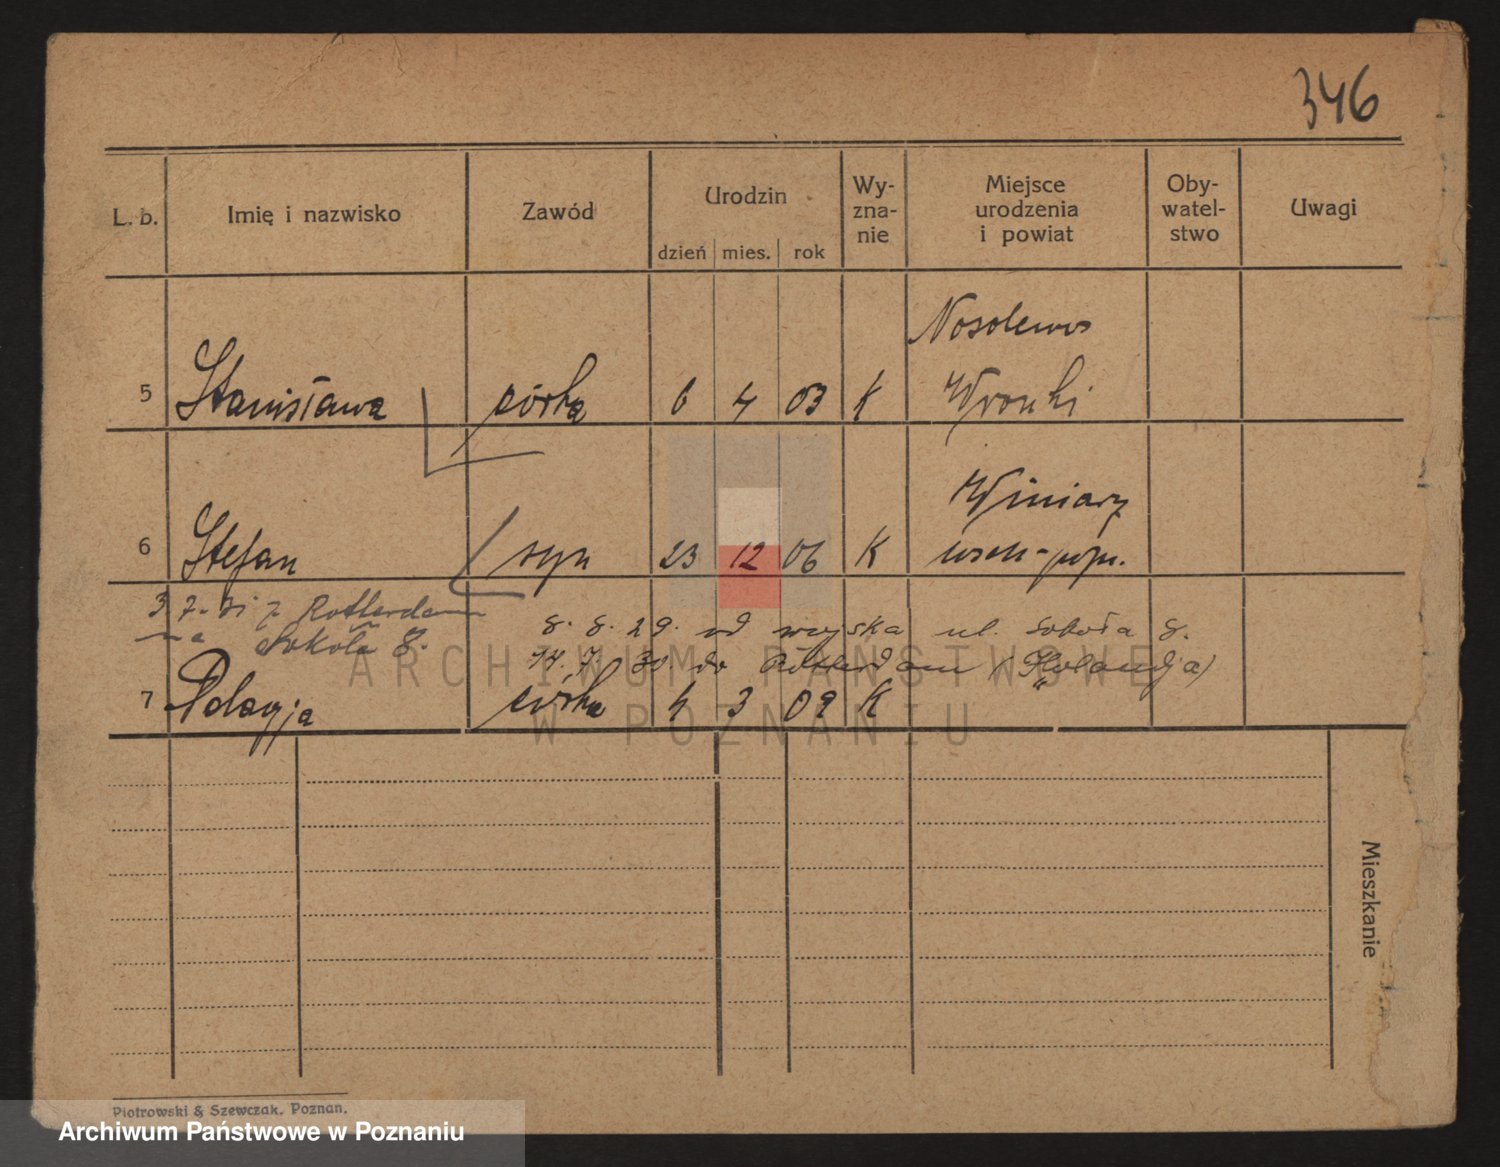 346
L. b.
Imię i nazwisko
Zawód
Urodzin
dzień mies. rok
Wy-
zna-
nie
Miejsce
urodzenia
i powiat
Oby-
watel-
stwo
Uwagi
Nosolewo
5 Stanisława córka 6 4 03 K Wronki
Winiary
6 Stefan syn 23 12 06 K wsch-pozn.
3 7. 31 z Rotterdam
na Sokoła 8.
8. 8. 29. od wojska ul. Sokoła 8.
14. 7. 30. do Rotterdam (Holandja)
7 Pelagja córka 4 3 09 K "
ARCHIWUM PAŃSTWOWE
W POZNANIU
Mieszkanie
Piotrowski & Szewczak, Poznań.
Archiwum Państwowe w Poznaniu